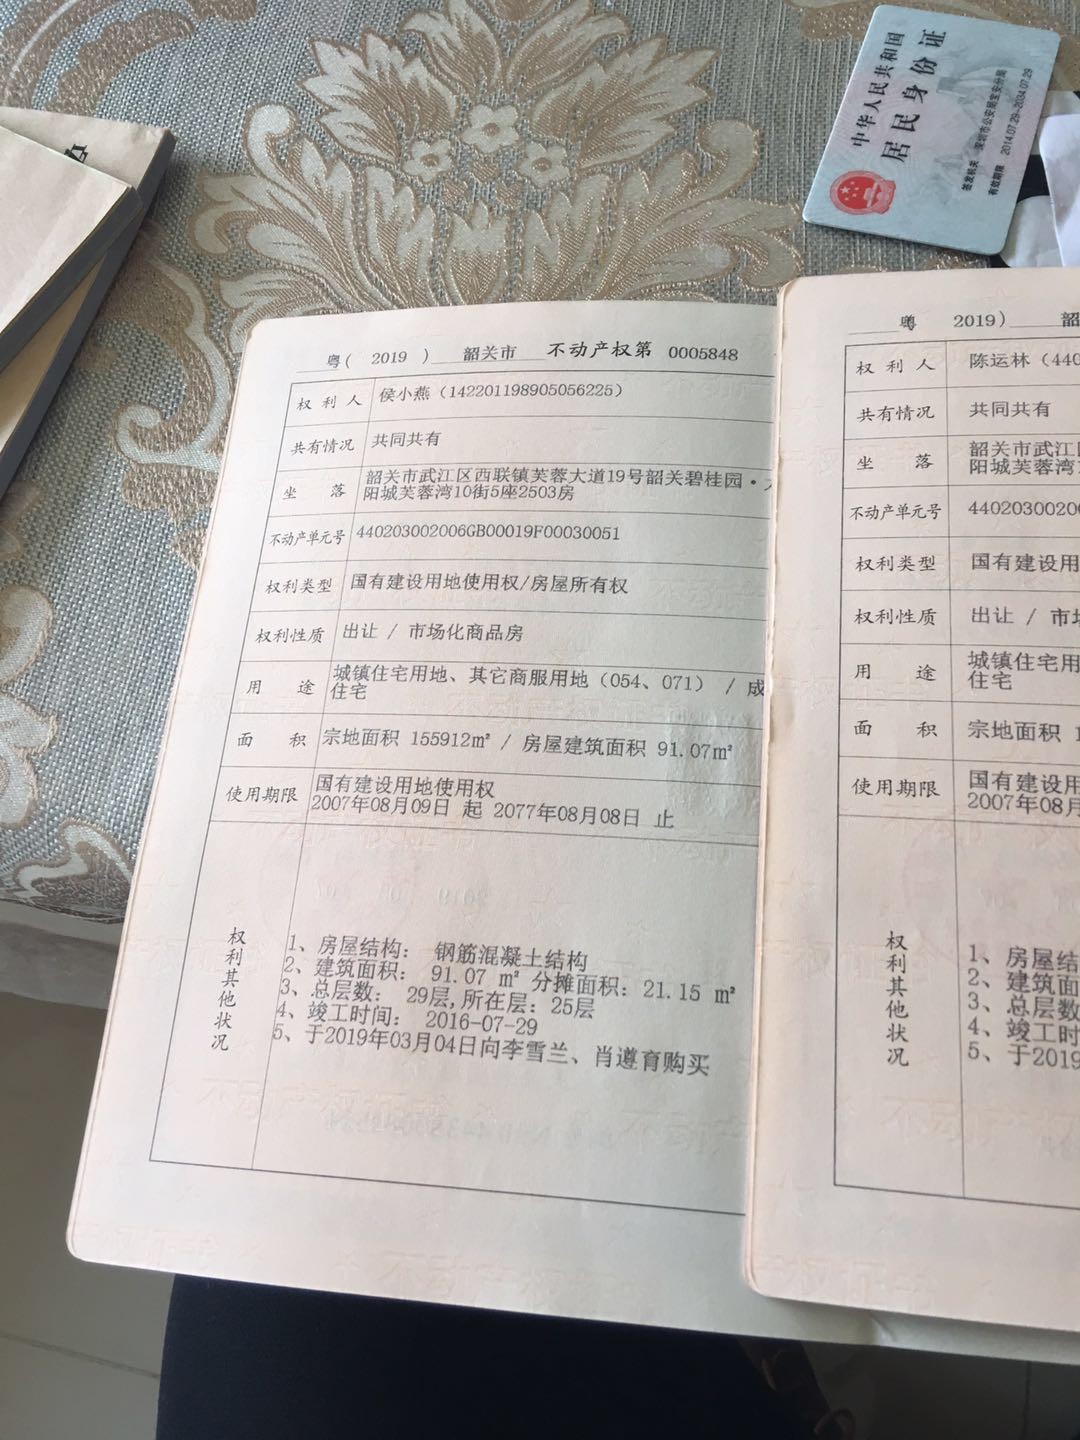 中华人民共和国
居民身份证
签发机关 深圳市公安局宝安分局
有效期限 2014.07.29-2034.07.29
粤( 2019 ) 韶关市 不动产权第 0005848
权利人 侯小燕（142201198905056225）
共有情况 共同共有
坐落 韶关市武江区西联镇芙蓉大道19号韶关碧桂园·
阳城芙蓉湾10街5座2503房
不动产单元号 440203002006GB00019F00030051
权利类型 国有建设用地使用权/房屋所有权
权利性质 出让 / 市场化商品房
用途 城镇住宅用地、其它商服用地（054、071） / 成
住宅
面积 宗地面积 155912㎡ / 房屋建筑面积 91.07㎡
使用期限 国有建设用地使用权
2007年08月09日 起 2077年08月08日 止
权利其他状况
1、房屋结构： 钢筋混凝土结构
2、建筑面积： 91.07 ㎡ 分摊面积：21.15 ㎡
3、总层数： 29层,所在层：25层
4、竣工时间： 2016-07-29
5、于2019年03月04日向李雪兰、肖遵育购买
粤 2019） 韶
权利人 陈运林（440
共有情况 共同共有
坐落 韶关市武江
阳城芙蓉湾
不动产单元号 440203002006
权利类型 国有建设用
权利性质 出让 / 市
用途 城镇住宅用
住宅
面积 宗地面积
使用期限 国有建设用
2007年08月
权利其他状况
1、房屋结
2、建筑面
3、总层数
4、竣工时
5、于2019